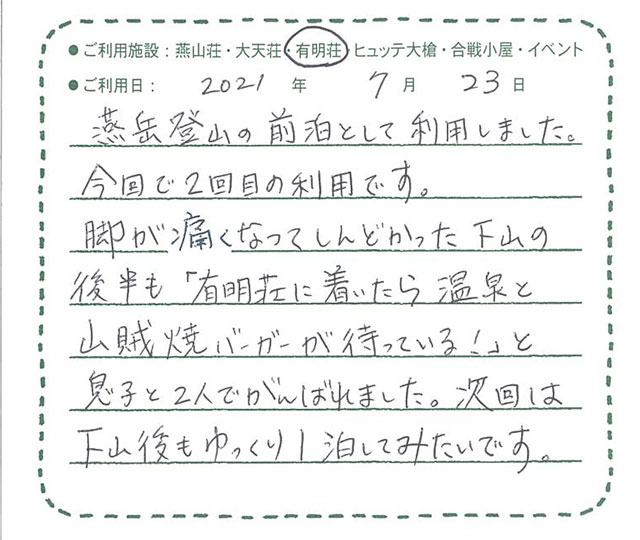 ●ご利用施設：燕山荘・大天荘・有明荘・ヒュッテ大槍・合戦小屋・イベント
●ご利用日： 2021 年 7 月 23 日
燕岳登山の前泊として利用しました。
今回で2回目の利用です。
脚が痛くなってしんどかった下山の
後半も「有明荘に着いたら温泉と
山賊焼バーガーが待っている!」と
息子と2人でがんばれました。次回は
下山後もゆっくり1泊してみたいです。